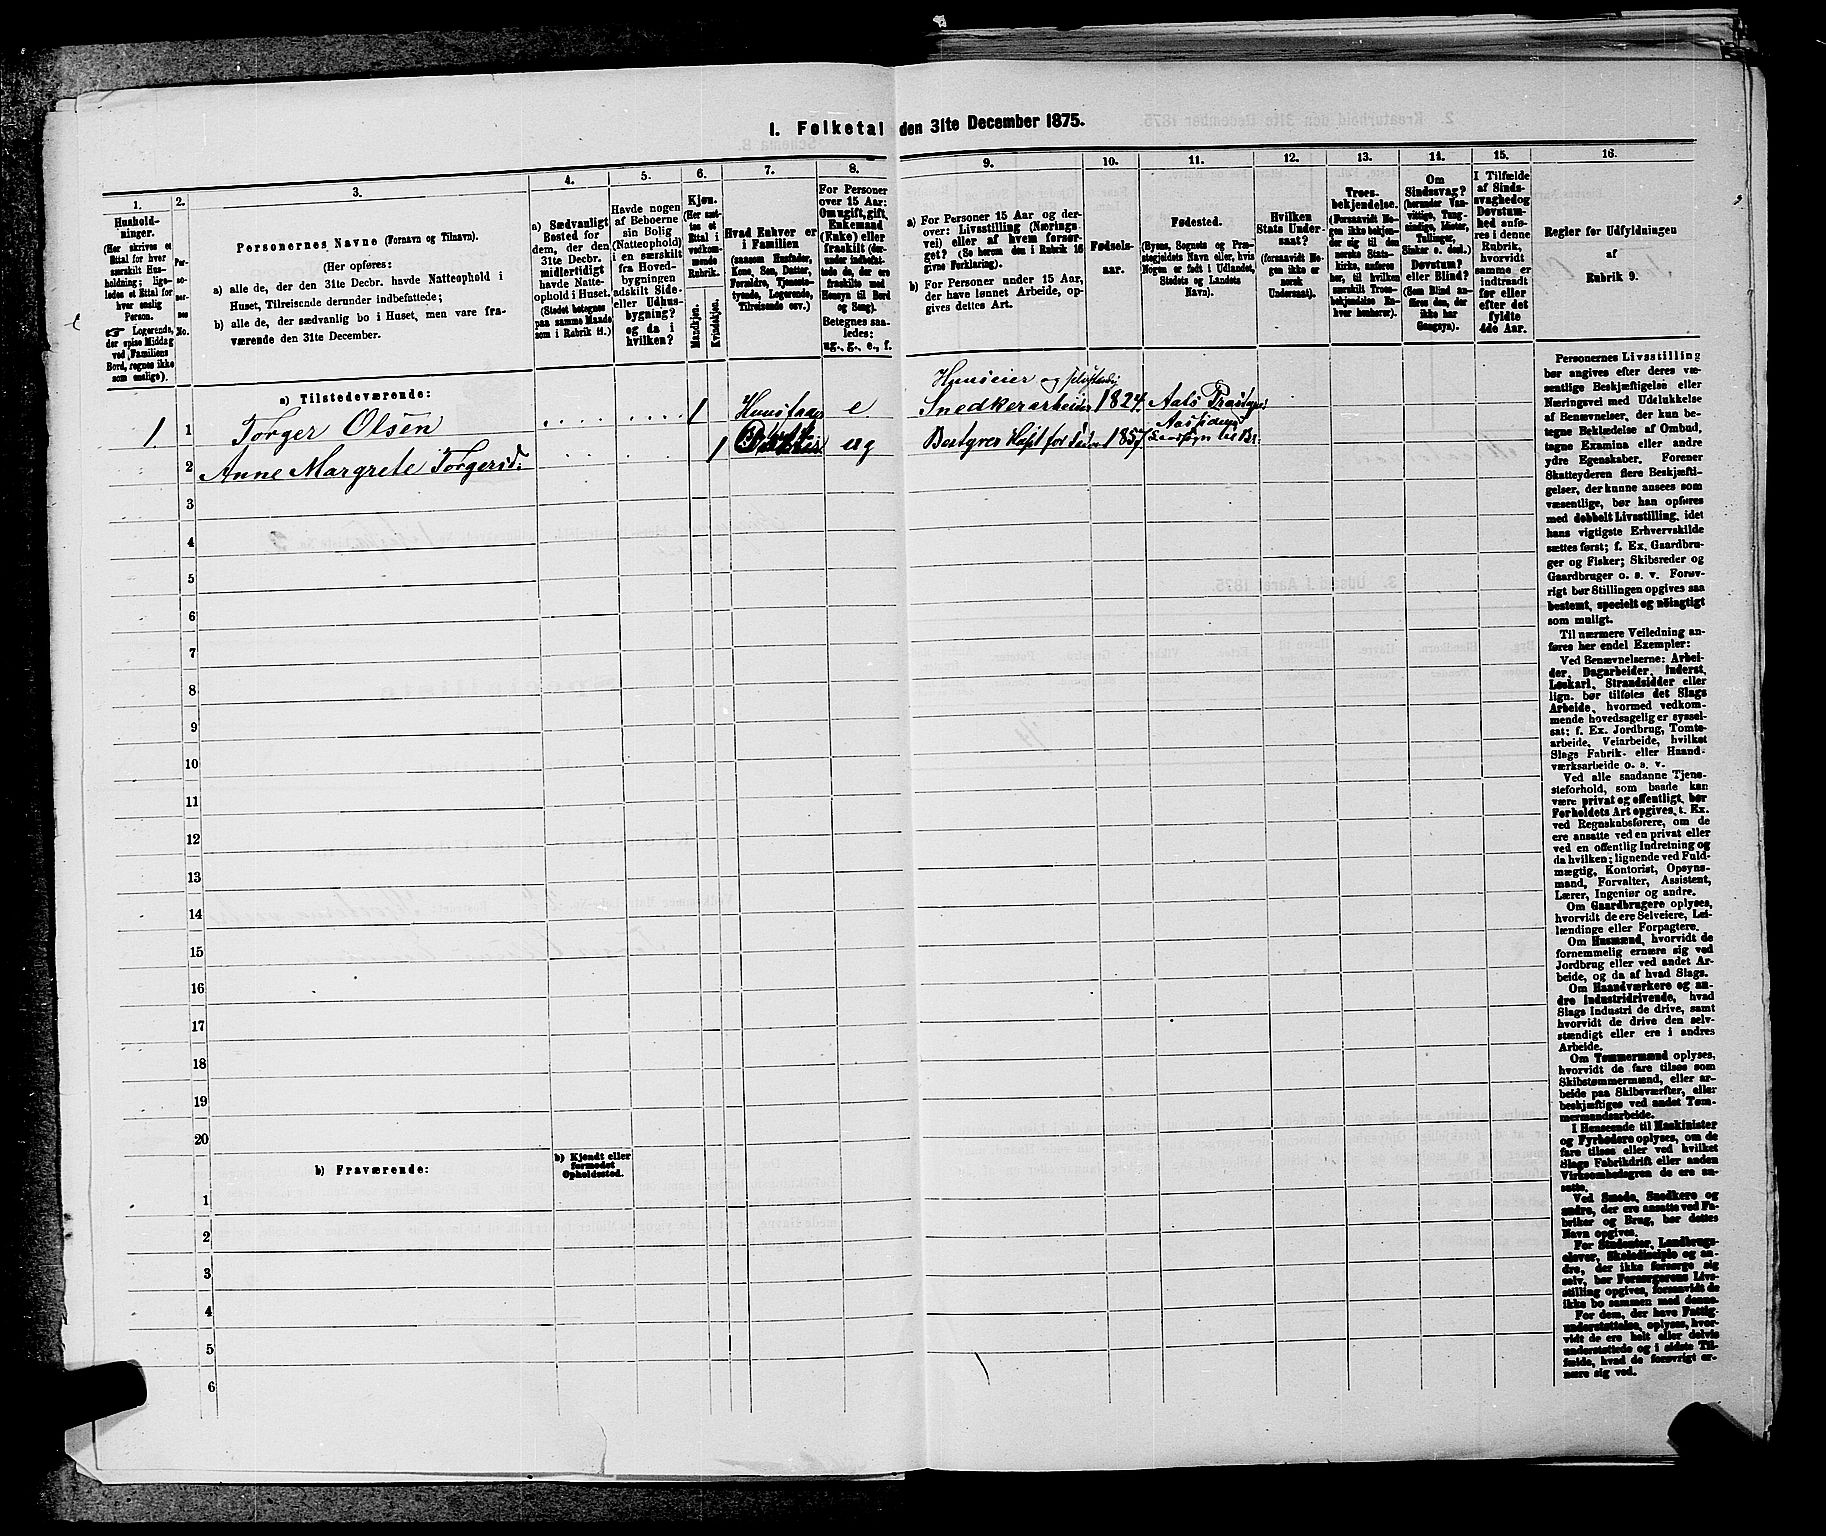 1. Folketal den 31te December 1875.
1.
Hushold-
ninger.
(Her skrives et
Ettal for hver
særskilt Hus-
holdning; lige-
ledes et Ettal for
hver enslig
Person.
Logerende,
der spise Middag
ved Familiens
Bord, regnes ikke
som enslige).
2.
Per-
so-
ner-
nes
No.
3.
Personernes Navne (Fornavn og Tilnavn).
(Her opføres:
a) alle de, der den 31te Decbr. havde Natteophold i
Huset, Tilreisende derunder indbefattede;
b) alle de, der sædvanlig bo i Huset, men vare fra-
værende den 31te December.
4.
a) Sædvanligt
Bosted for
dem, der den
31te Decbr.
midlertidigt
havde Natte-
ophold i Huset.
(Stedet betegnes
paa samme Maade
som i Rubrik 11.)
5.
Havde nogen
af Beboerne
sin Bolig
(Natteophold)
i en særskilt
fra Hoved-
bygningen
adskilt Side-
eller Udhus-
bygning?
og da i
hvilken?
6.
Kjøn.
(Her sæt-
tes et
Ettal i
vedkom-
mende
Rubrik.
Mandkjøn.
Kvindekjøn.
7.
Hvad Enhver er
i Familien
(saasom Husfader,
Kone, Søn, Datter,
Forældre, Tjeneste-
tyende, Logerende,
Tilreisende osv.)
8.
For Personer
over 15 Aar:
Om ugift, gift,
Enkemand
(Enke) eller
fraskilt (der-
under indbefat-
tede de, der ere
fraskilte med
Hensyn til Bord
og Seng).
Betegnes saa-
ledes:
ug., g., e., f.
9.
a) For Personer 15 Aar og der-
over: Livsstilling (Nærings-
vei) eller af hvem forsør-
get? (Se herom den i Rubrik 16
givne Forklaring).
b) For Personer under 15 Aar,
der have lønnet Arbeide, op-
gives dettes Art.
10.
Fødsels-
aar.
11.
Fødested.
(Byens, Sognets og Præ-
stegjeldets Navn eller, hvis
Nogen er født i Udlandet,
Stedets og Landets
Navn).
12.
Hvilken
Stats Under-
saat?
(forsaavidt No-
gen ikke er
norsk
Undersaat).
13.
Troes-
bekjendelse.
(Forsaavidt No-
gen ikke bekjen-
der sig til den
norske Stats-
kirke, anføres
her, til hvilken
særskilt Troes-
bekjendelse En-
hver henhører).
14.
Om
Sindssvag?
(herunder Van-
vittige, Tung-
sindige, Idioter,
Tullinger,
Sinker o. desl.)
Døvstum?
eller Blind?
(Som Blind an-
føres den, der
ikke har
Gangsyn).
15.
I Tilfælde
af Sinds-
svaghed og
Døvstum-
hed anfø-
res i denne
Rubrik,
hvorvidt
samme er
indtraadt
før eller
efter det
fyldte
4de Aar.
16.
Regler for Udfyldningen
af
Rubrik 9.
a) Tilstedeværende:
1 1 Torger Olsen 1 e. Huseier og selvstændig Snedkerarbeider 1824
2 Anne Margrete Torgersd: 1 ug 1857
3
4
5
6
7
8
9
10
11
12
13
14
15
16
17
18
19
20
b) Fraværende:
b) Kjendt eller
formodet
Opholdssted.
1
2
3
4
5
6
Personernes Livsstilling
bør angives efter deres væ-
sentlige Beskjæftigelse eller
Næringsvei med Udelukkelse
af Benævnelser, der kun be-
tegne Beklædelse af Ombud,
tagne Examina eller andre
ydre Egenskaber. Forener
Skatteyderen flere Beskjæfti-
gelser, der kunne ansees som
væsentlige, bør han opføres
med dobbelt Livsstilling, idet
hans vigtigste Erhvervskilde
sættes først; f. Ex. Gaardbru-
ger og Fisker; Skibsreder og
Gaardbruger o. s. v. Forøv-
rigt bør Stillingen opgives saa
bestemt, specielt og nöiagtigt
som muligt.
Til nærmere Veiledning an-
føres her endel Exempler:
Ved Benævnelserne: Arbei-
der, Dagarbeider, Inderst,
Løskarl, Strandsidder eller
lign. bør tilføies det Slags
Arbeide, hvormed vedkom-
mende hovedsagelig er syssel-
sat; f. Ex. Jordbrug, Tomte-
arbeide, Veiarbeide, hvilket
Slags Fabrik- eller Haand-
værksarbeide o. s. v.
Ved alle saadanne Tjene-
steforhold, som baade kan
være privat og offentligt, bør
Forholdets Art opgives, t. Ex.
ved Regnskabsførere, om de
ere ansatte ved en privat eller
ved en offentlig Indretning og
da hvilken; lignende ved Fuld-
mægtig, Kontorist, Opsyns-
mand, Forvalter, Assistent,
Lærer, Ingeniør og andre.
Om Gaardbrugere oplyses,
hvorvidt de ere Selveiere, Lei-
lændinge eller Forpagtere.
Om Husmænd, hvorvidt de
fornemmelig ernære sig ved
Jordbrug eller ved andet Ar-
beide, og da af hvad Slags.
Om Haandværkere og an-
dre Industridrivende, hvad
Slags Industri de drive, samt
hvorvidt de drive den selv-
stændigt eller ere i andres
Arbeide.
Om Tømmermænd oplyses,
hvorvidt de fare tilsøs som
Skibstømmermænd, eller ar-
beide paa Skibsværfter, eller
beskjæftiges ved andet Tøm-
mermandsarbeide.
I Henseende til Maskinister
og Fyrbødere oplyses, om de
fare tilsøs eller ved hvilket
Slags Fabrikdrift eller anden
Virksomhedsgren de ere an-
satte.
Ved Smede, Snedkere og
andre, der ere ansatte ved Fa-
briker og Brug, bør dettes
Navn opgives.
For Studenter, Landbrugs-
elever, Skoledisciple og an-
dre, der ikke forsørge sig
selv, bør Forsørgerens Livs-
stilling opgives, forsaavidt de
ikke bo sammen med denne.
For dem, der have Fattig-
understøttelse, oplyses, hvor-
vidt de ere helt eller delvis
understøttede og i sidste Til-
fælde, hvad de forøvrigt er-
nære sig ved.